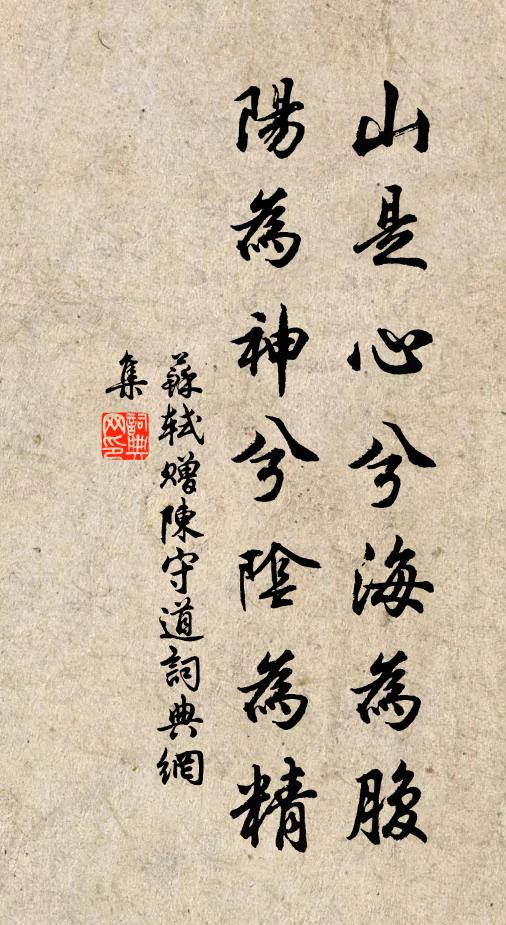 山是心兮海為腹
陽為神兮陰為精
蘇軾贈陳守道詞典網
集
詞典
网印